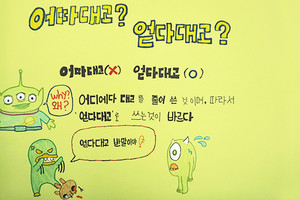 어따대고?
얻다대고?
어따대고(X) 얻다대고(O)
why?
왜?
어디에다 대고를 줄여 쓴 것이며, 따라서
'얻다대고'로 쓰는것이 바르다
얻다대고 반말이야?